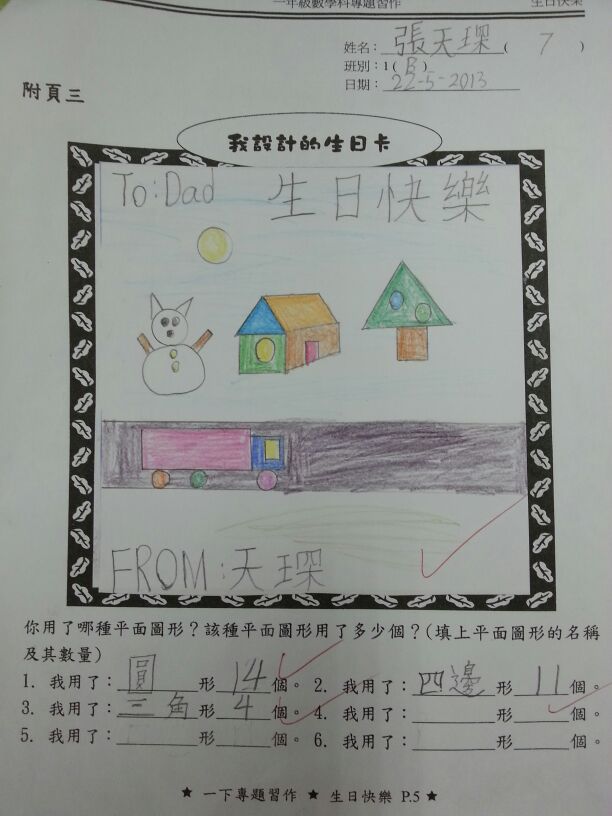 一年級數學科專題習作 生日快樂
姓名：張天琛( 7 )
班別：1( B )
日期：22-5-2013
附頁三
我設計的生日卡
To:Dad 生日快樂
FROM:天琛
你用了哪種平面圖形？該種平面圖形用了多少個？(填上平面圖形的名稱
及其數量)
1. 我用了：圓形14個。 2. 我用了：四邊形11個。
3. 我用了：三角形4個。 4. 我用了：______形______個。
5. 我用了：______形______個。 6. 我用了：______形______個。
★ 一下專題習作 ★ 生日快樂 P.5 ★